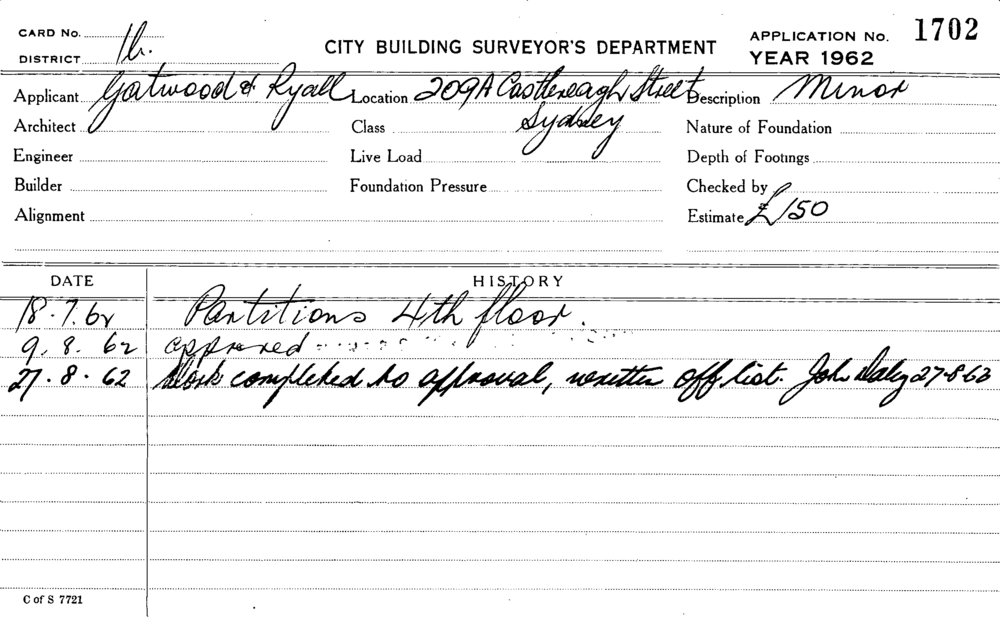 CARD No.
CITY BUILDING SURVEYOR'S DEPARTMENT
APPLICATION No. 1702
DISTRICT 1b.
YEAR 1962
Applicant Gatwood & Ryall Location 209A Castlereagh Street Sydney Description Minor
Architect Class Nature of Foundation
Engineer Live Load Depth of Footings
Builder Foundation Pressure Checked by
Alignment Estimate £150
DATE HISTORY
18.7.62 Partitions 4th floor.
9.8.62 approved
27.8.62 Work completed to approval, written off list. John Daley 27-8-62
C of S 7721